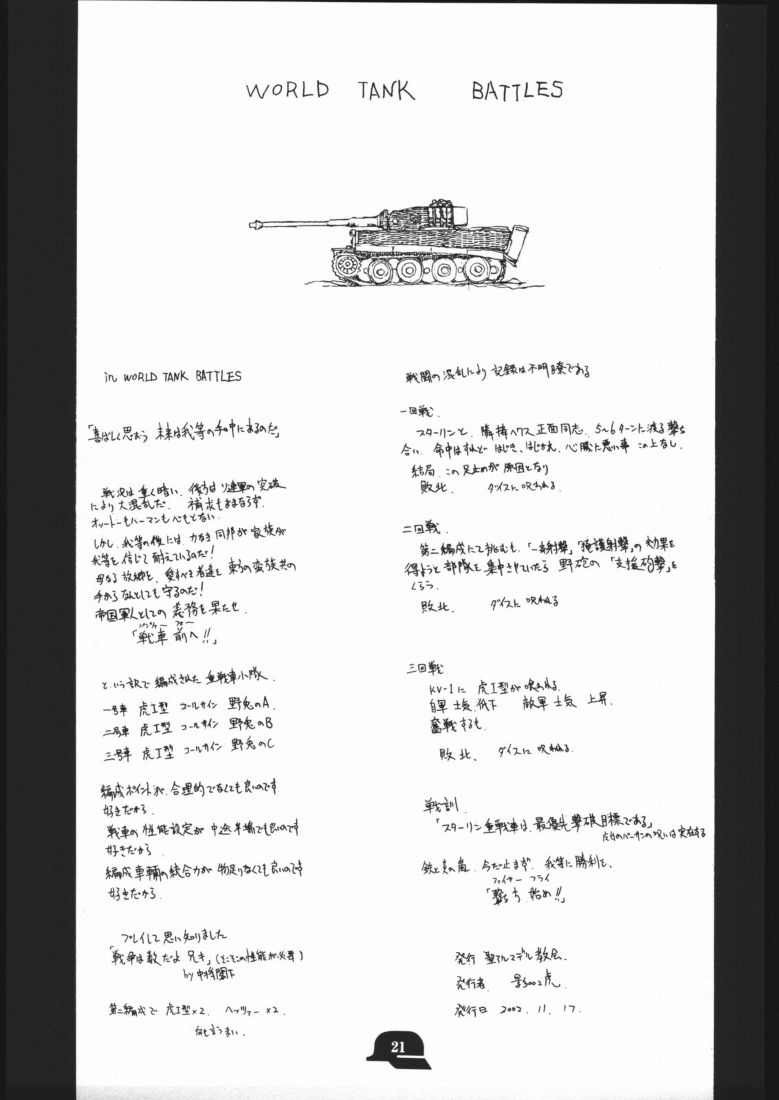 WORLD TANK BATTLES
in WORLD TANK BATTLES
「喜ばしく思おう 未来は我等の手中にあるのだ」
戦況は重く暗い、後方はソ連軍の突破
により大混乱だ。 補給もままならず
オットーもハーマンも心もとない
しかし、我等の後には、力なき同邦が家族が
我等を信じて耐えているのだ!
母なる故郷と、愛すべき者達を 東方の蛮族共の
手から なんとしても守るのだ!
帝国軍人としての 義務を果たせ
「戦車 前へ!!」
という訳で 編成された 重戦車小隊
一号車 虎I型 コールサイン 野兎のA
二号車 虎I型 コールサイン 野兎のB
三号車 虎I型 コールサイン 野兎のC
編成ポイントが、合理的でなくても良いのです
好きだから
戦車の性能設定が 中途半場でも良いのです
好きだから
編成車輛の統合力が 物足りなくても良いのです
好きだから
プレイして思い知りました
「戦争は数だよ 兄キ」(そこそこの性能が必要)
by 中将閣下
第二編成で 虎I型×2、 ヘッツァー×2.
何も言うまい
戦闘の混乱により 記録は不明瞭である
一回戦、
スターリンと、 正面同志、5~6ターンに渡る撃ち
合い、命中はすれど はじき、はじかれ、心臓に悪い事 この上なし、
結局、この足止めが 原因となり
敗北、 ダイスに呪われる
二回戦、
第二編成にて挑むも、「一斉射撃」「掩護射撃」の効果を
得ようと 部隊を 集中させていたら 野砲の「支援砲撃」を
くらう
敗北、 ダイスに呪われる
三回戦
KV-1に 虎I型が喰われる
自軍 士気 低下 敵軍 士気 上昇
奮戦するも
敗北、 ダイスに呪われる
戦訓
「スターリン重戦車は、最優先撃破目標である」
の呪いは実在する
鉄と炎の嵐 今だ止まず、我等に勝利を、
ファイヤー フライ
「撃ち方 始め!!」
発行 聖アルマデル教会
発行者
発行日 2002. 11. 17.
21